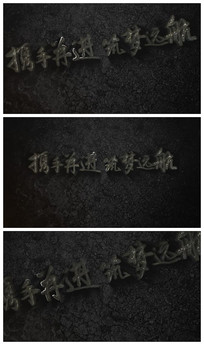 携手并进 筑梦远航
携手并进 筑梦远航
携手并进 筑梦远航